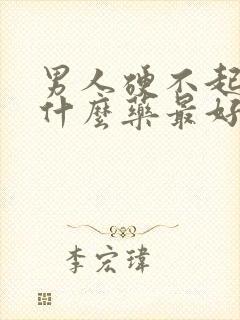 男人硬不起
什麼藥最好
李宏瑋